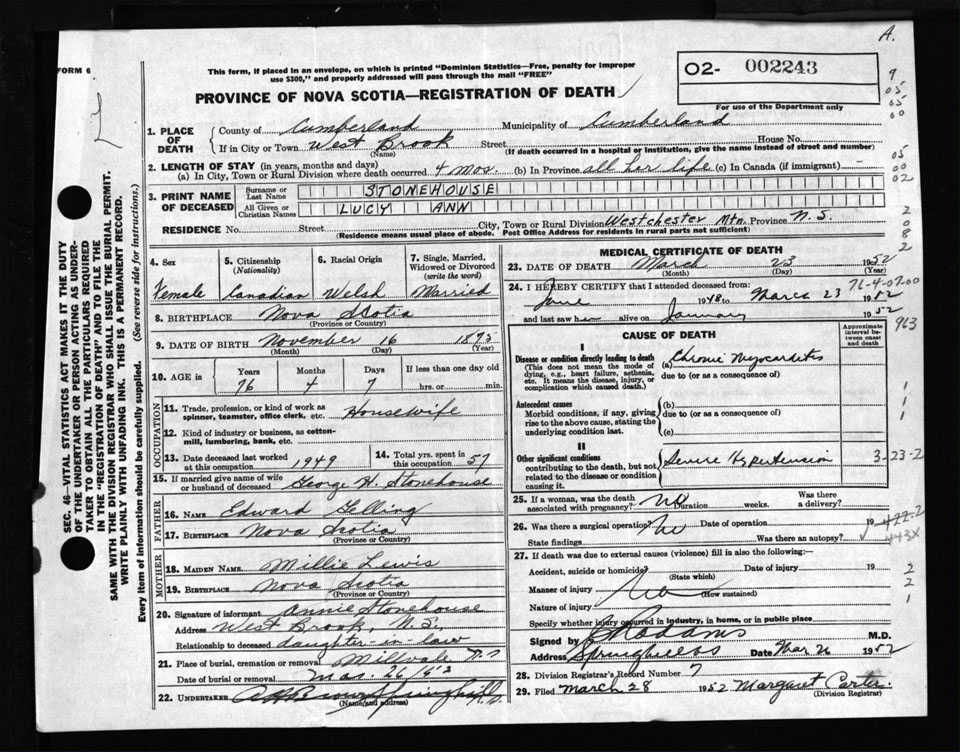 A.
FORM 6
This form, if placed in an envelope, on which is printed "Dominion Statistics—Free, penalty for improper
use $300," and properly addressed will pass through the mail "FREE"
02- 002243
For use of the Department only
PROVINCE OF NOVA SCOTIA—REGISTRATION OF DEATH
1. PLACE OF DEATH
County of Cumberland Municipality of Cumberland
If in City or Town West Brook Street House No.
(Name) (If death occurred in a hospital or institution, give the name instead of street and number)
2. LENGTH OF STAY (in years, months and days)
(a) In City, Town or Rural Division where death occurred 4 mos. (b) In Province all her life (c) In Canada (if immigrant)
3. PRINT NAME OF DECEASED
Surname or Last Name STONEHOUSE
All Given or Christian Names LUCY ANN
RESIDENCE No. Street City, Town or Rural Division Westchester Mtn. Province N.S.
(Residence means usual place of abode. Post Office Address for residents in rural parts not sufficient)
4. Sex
Female
5. Citizenship
(Nationality)
Canadian
6. Racial Origin
Welsh
7. Single, Married, Widowed or Divorced
(write the word)
Married
8. BIRTHPLACE Nova Scotia
(Province or Country)
9. DATE OF BIRTH November 16 1893
(Month) (Day) (Year)
10. AGE in Years Months Days If less than one day old
76 4 7 hrs. or min.
OCCUPATION
11. Trade, profession, or kind of work as
spinner, teamster, office clerk, etc. Housewife
12. Kind of industry or business, as cotton-
mill, lumbering, bank, etc.
13. Date deceased last worked
at this occupation 1949
14. Total yrs. spent in
this occupation 57
15. If married give name of wife
or husband of deceased George H. Stonehouse
FATHER
16. NAME Edward Gelling
17. BIRTHPLACE Nova Scotia
(Province or Country)
MOTHER
18. MAIDEN NAME Millie Lewis
19. BIRTHPLACE Nova Scotia
(Province or Country)
20. Signature of informant Annie Stonehouse
Address West Brook, N.S.
Relationship to deceased daughter-in-law
21. Place of burial, cremation or removal Millvale N.S
Date of burial or removal Mar. 26/52
22. UNDERTAKER Springhill N.S.
(Name and address)
MEDICAL CERTIFICATE OF DEATH
23. DATE OF DEATH March 23 1952
(Month) (Day) (Year)
24. I HEREBY CERTIFY that I attended deceased from:
June 1948 to March 23 1952
and last saw her alive on January 1952
CAUSE OF DEATH
Approximate interval between onset and death
I
Disease or condition directly leading to death
(This does not mean the mode of
dying, e.g., heart failure, asthenia,
etc. It means the disease, injury, or
complication which caused death.)
(a) Chronic Myocarditis
due to (or as consequence of)
Antecedent causes
Morbid conditions, if any, giving
rise to the above cause, stating the
underlying condition last.
(b)
due to (or as consequence of)
(c)
II
Other significant conditions
contributing to the death, but not
related to the disease or condition
causing it.
Severe Hypertension
3-23-2
25. If a woman, was the death
associated with pregnancy? No Duration weeks.
Was there
a delivery?
26. Was there a surgical operation? No Date of operation 19
State findings Was there an autopsy?
422-2
443X
27. If death was due to external causes (violence) fill in also the following:—
Accident, suicide or homicide? Date of injury 19
(State which)
Manner of injury No
(How sustained)
Nature of injury
Specify whether injury occurred in industry, in home, or in public place
Signed by M.D.
Address Springhill N.S Date Mar 26 1952
28. Division Registrar's Record Number 7
29. Filed March 28 1952 Margaret Carter.
(Division Registrar)
SEC. 46—VITAL STATISTICS ACT MAKES IT THE DUTY
OF THE UNDERTAKER OR PERSON ACTING AS UNDER-
TAKER TO OBTAIN ALL THE PARTICULARS REQUIRED
IN THE "REGISTRATION OF DEATH" AND TO FILE THE
SAME WITH THE DIVISION REGISTRAR WHO SHALL ISSUE THE BURIAL PERMIT.
WRITE PLAINLY WITH UNFADING INK. THIS IS A PERMANENT RECORD.
Every item of information should be carefully supplied. (See reverse side for instructions.)
9
05
05
00
05
00
02
2
0
8
2
71-4-07-00
963
1
1
1
2
2
1